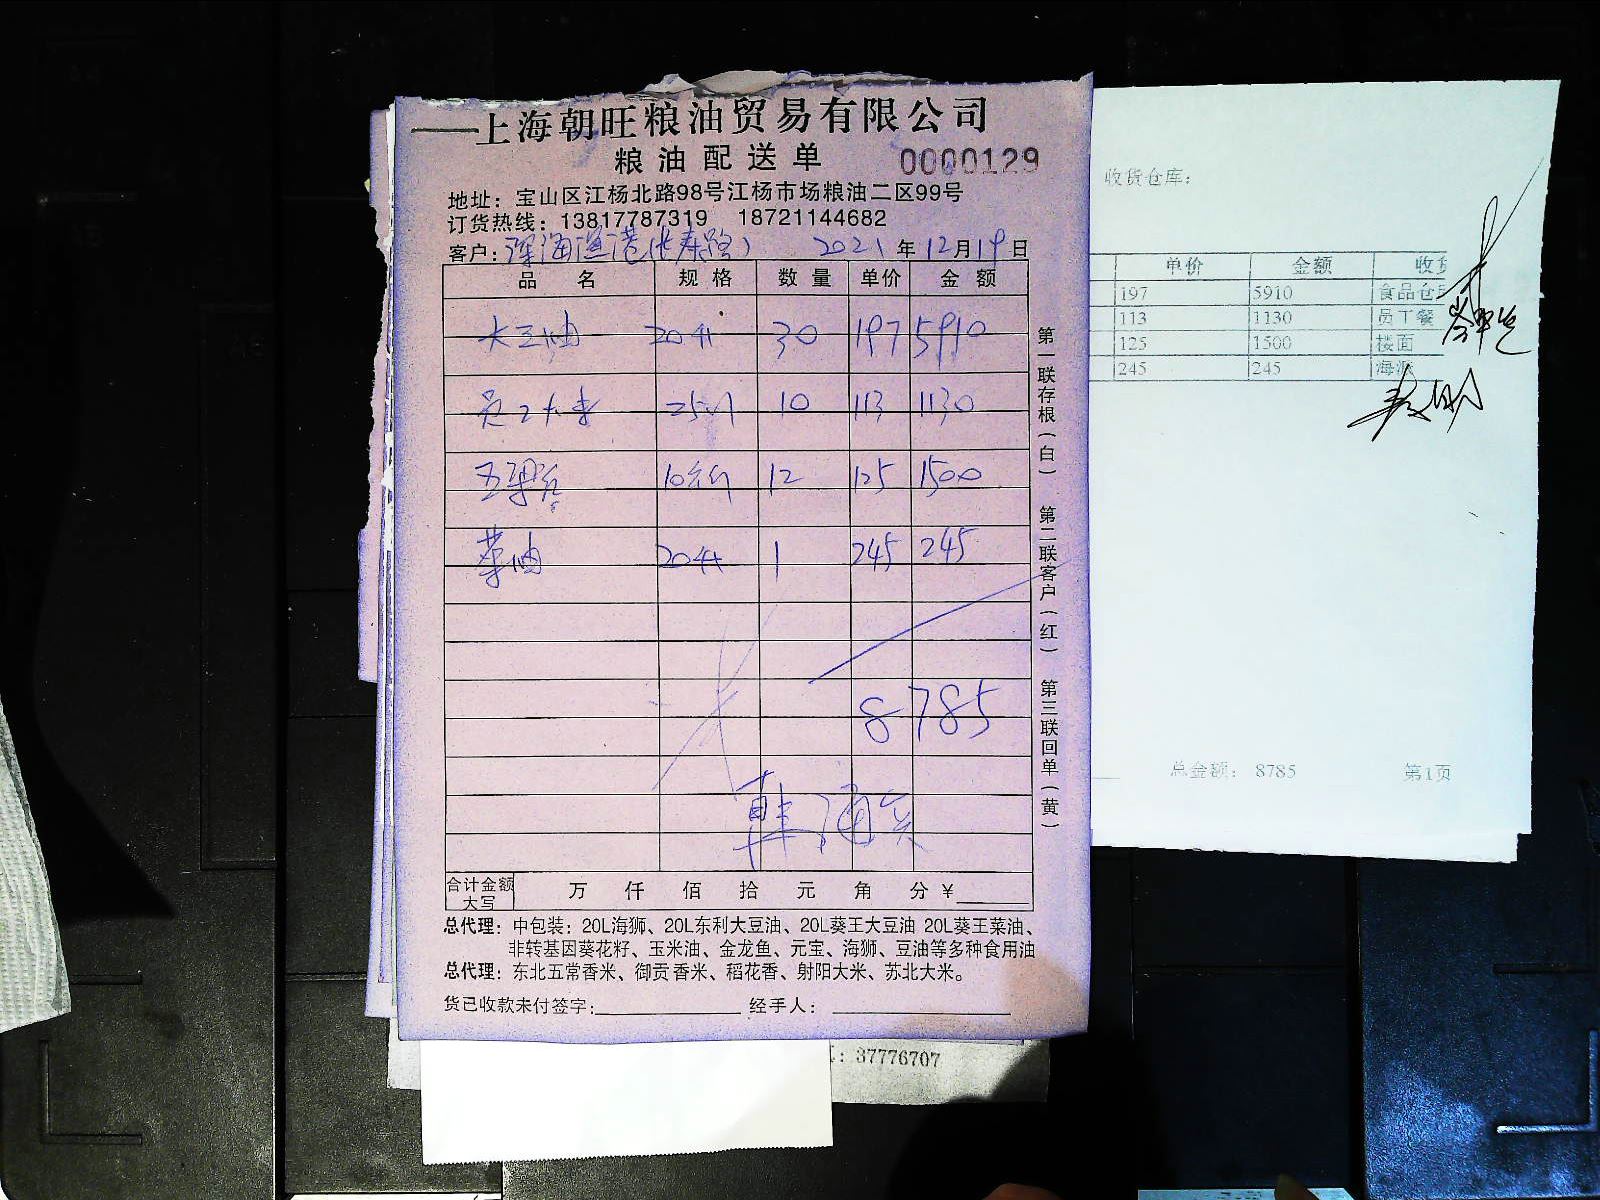 上海朝旺粮油贸易有限公司
粮油配送单 0000129
地址：宝山区江杨北路98号江杨市场粮油二区99号
订货热线：13817787319 18721144682
客户：深海渔港(长寿路) 2021年12月19日
品名 规格 数量 单价 金额
大豆油 20升 30 197 5910
员工大米 25 10 113 1130
五 10 12 125 1500
菜油 20升 1 245 245
8785
韩
合计金额大写 万 仟 佰 拾 元 角 分 ¥
总代理：中包装：20L海狮、20L东利大豆油、20L葵王大豆油 20L葵王菜油、
非转基因葵花籽、玉米油、金龙鱼、元宝、海狮、豆油等多种食用油
总代理：东北五常香米、御贡香米、稻花香、射阳大米、苏北大米。
货已收款未付签字： 经手人：
第一联存根（白） 第二联客户（红） 第三联回单（黄）
收货仓库：
单价 金额 收货
197 5910 食品仓库
113 1130 员工餐
125 1500 楼面
245 245 海派
总金额： 8785 第1页
: 37776707